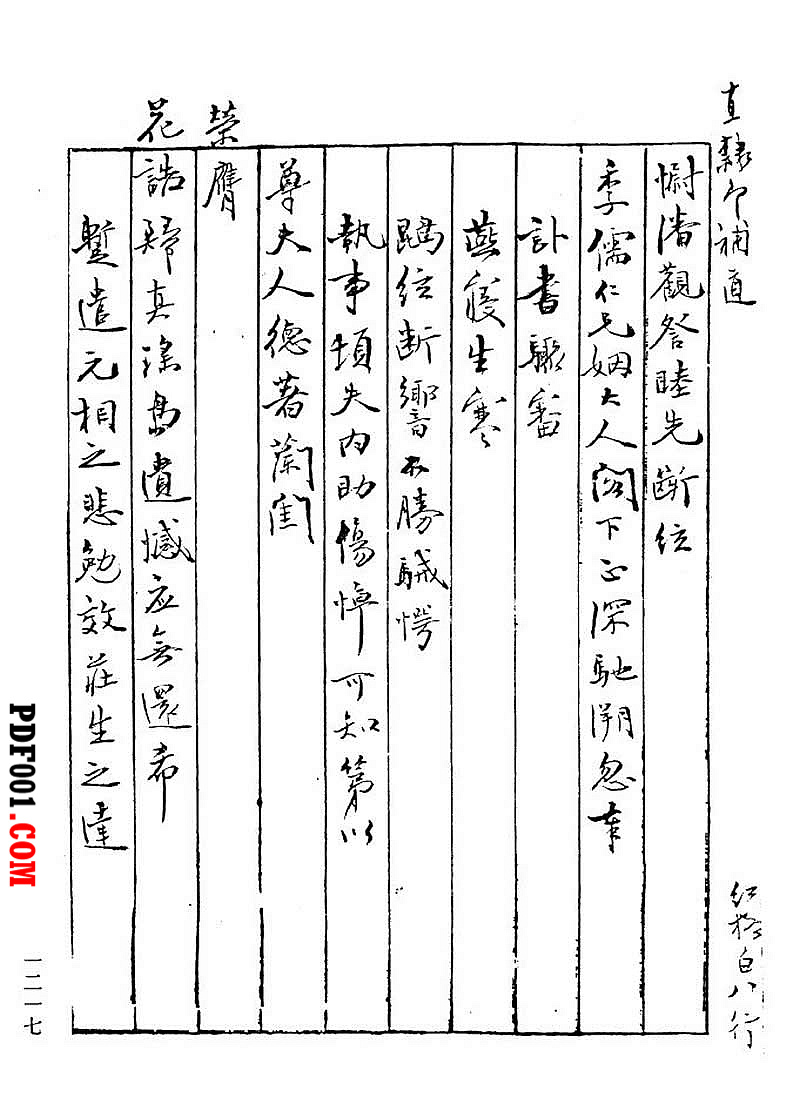 直隸即補道
慰潘觀詧睦先斷絃
季儒仁兄姻大人閣下正深馳溯忽奉
訃書驟審
燕寢生寒
鵾絃斷響不勝駴愕
執事頓失內助傷悼可知第以
尊夫人德著蘭閨
榮膺
花誥歸真瑤島遺憾应無還希
蹔遣元相之悲勉效莊生之達
红格白八行
一二一七
PDF001.COM